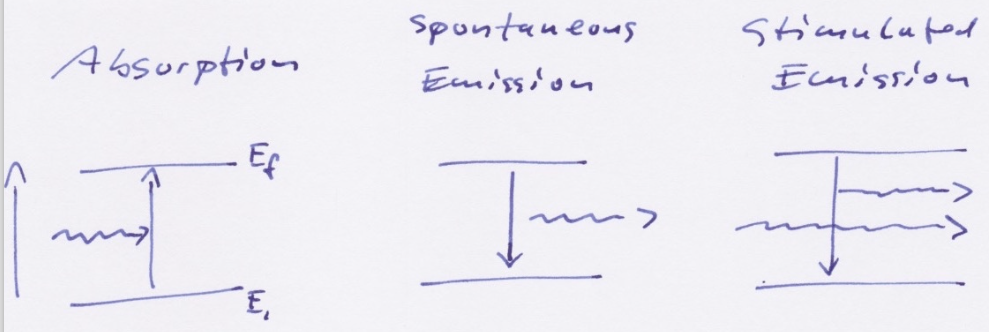 Absorption
Spontaneous
Emission
Stimulated
Emission
E_f
E_i